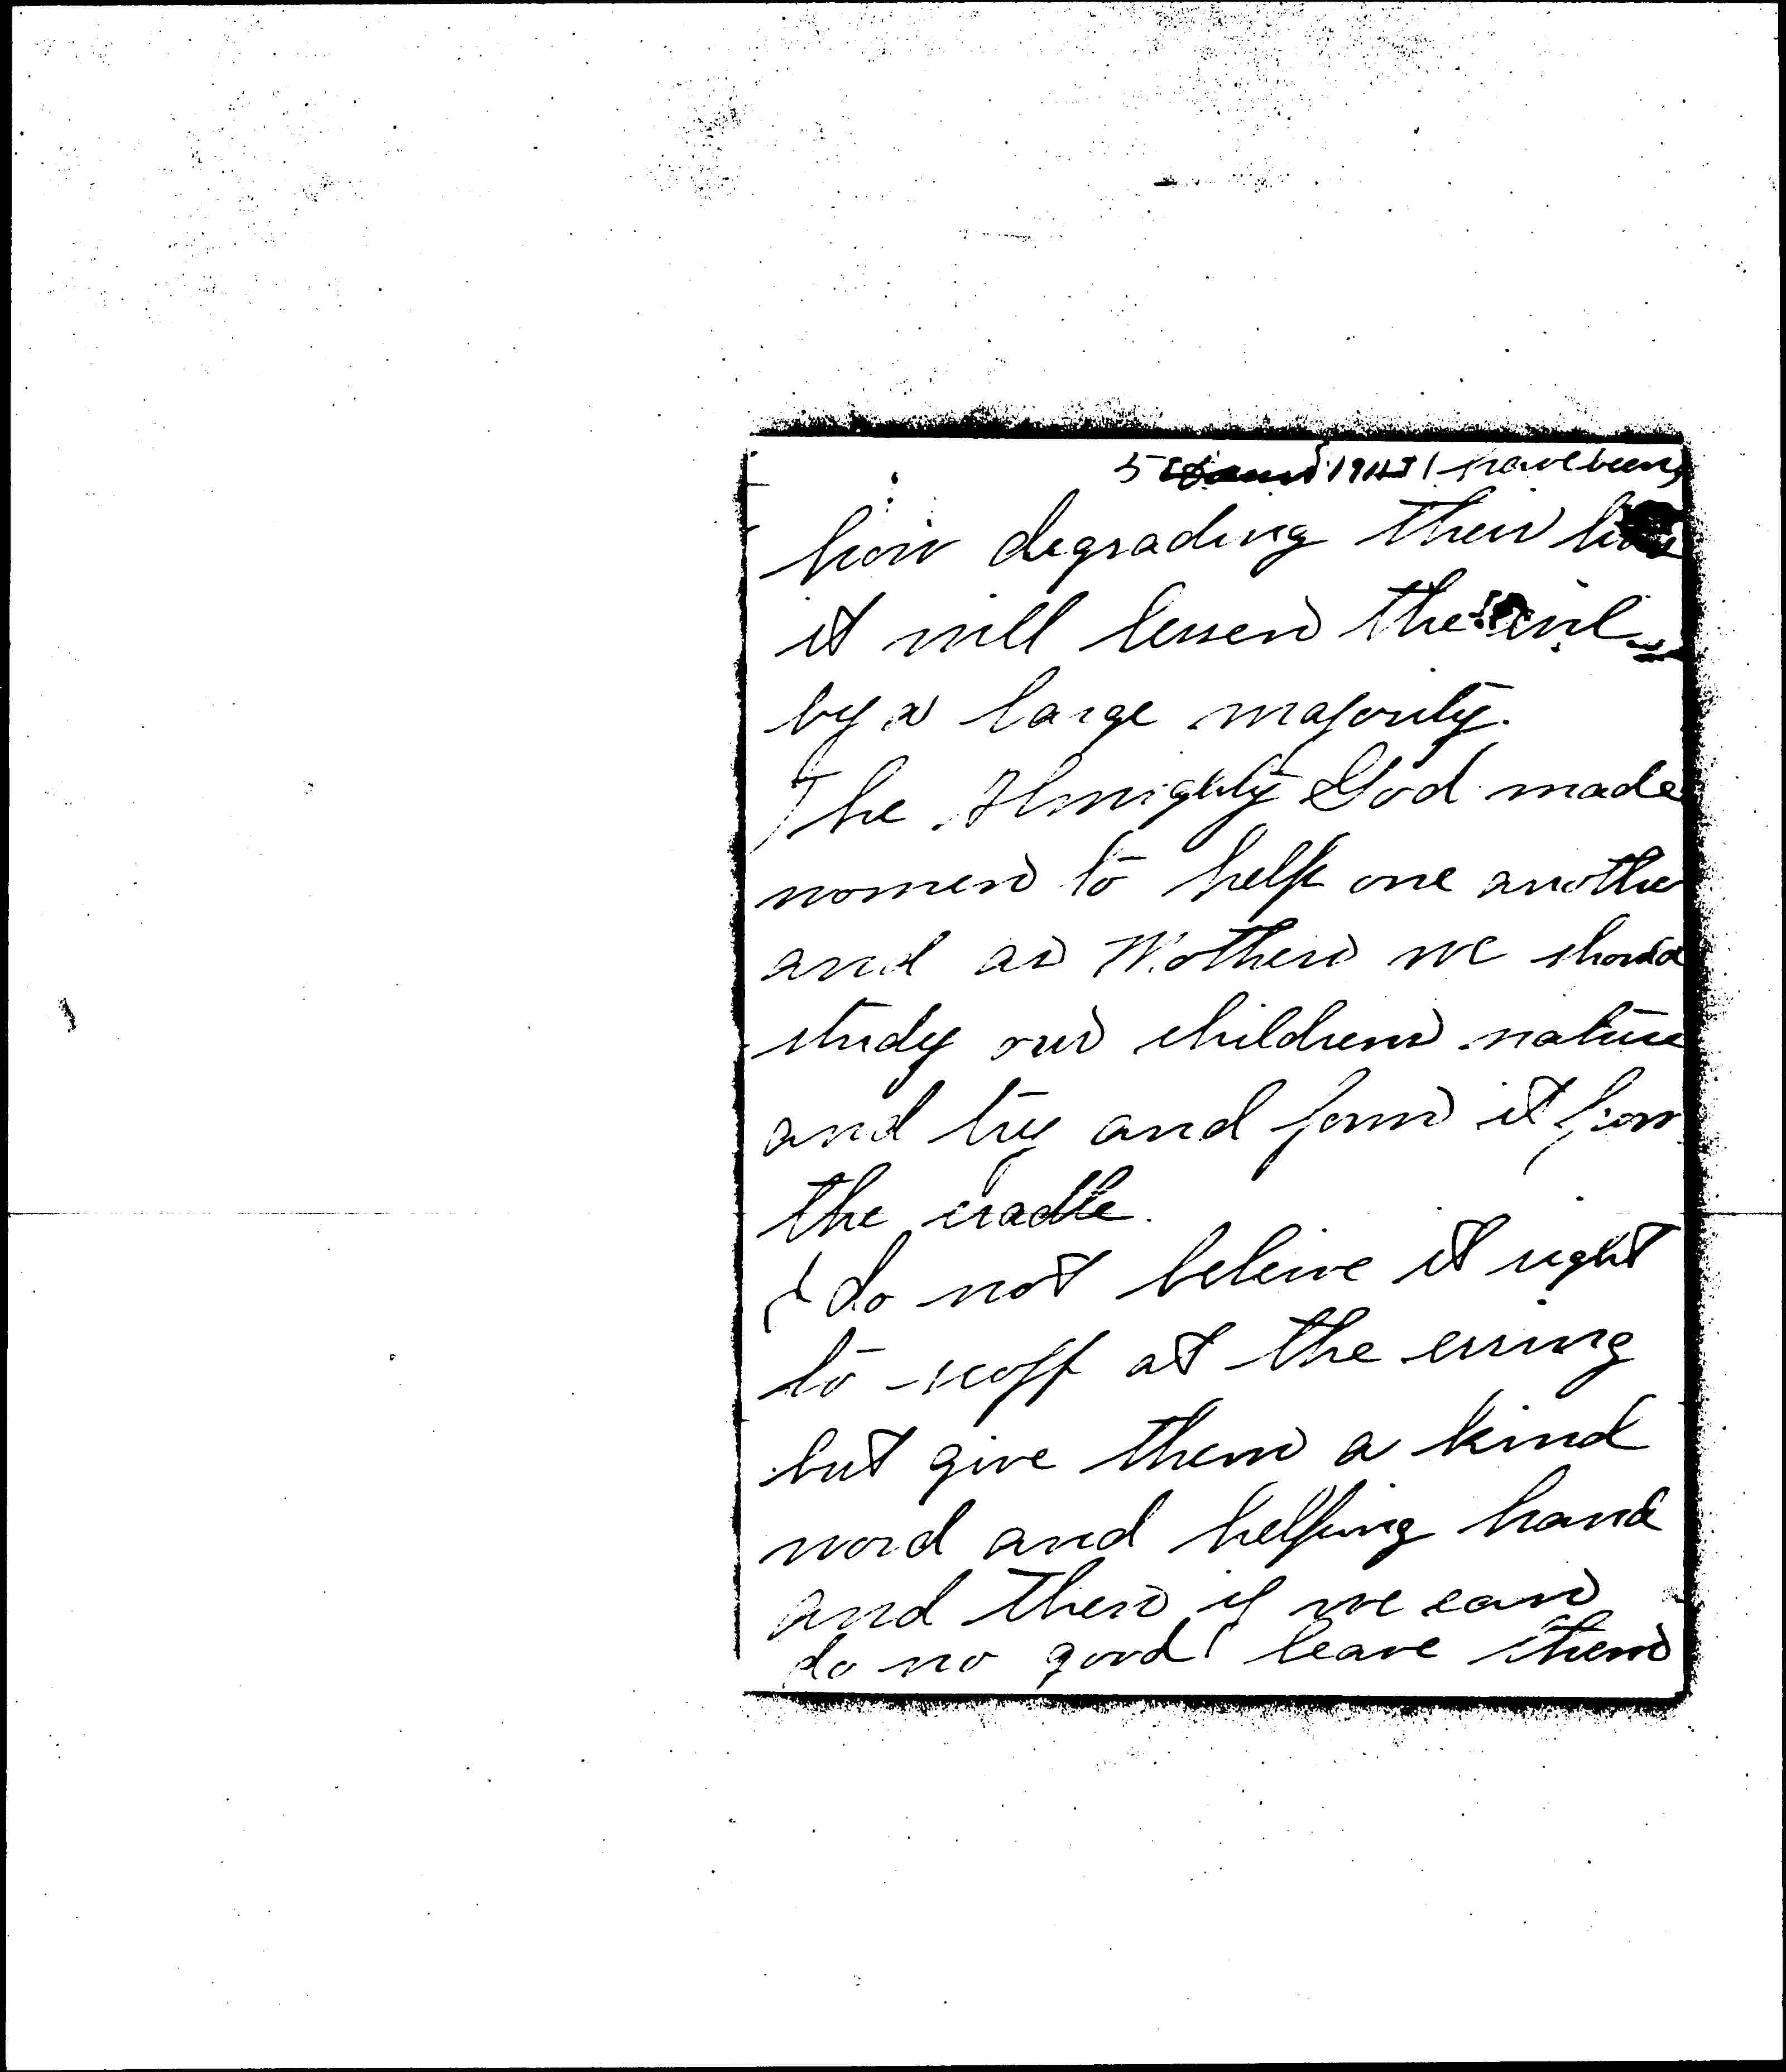 5 1914 I have been
how degrading their
it will lessen the evil
by a large majority.
The Almighty God made
women to help one another
and as Mothers we should
study our childrens nature
and try and form it from
the cradle.
I do not beleive it right
to scoff at the erring
but give them a kind
word and helping hand
and then if we can
do no good leave them